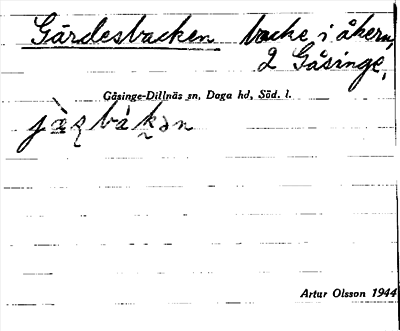 Gärdesbacken backe i åkern,
2 Gåsinge,
Gåsinge-Dillnäs sn, Daga hd, Söd. l.
Artur Olsson 1944